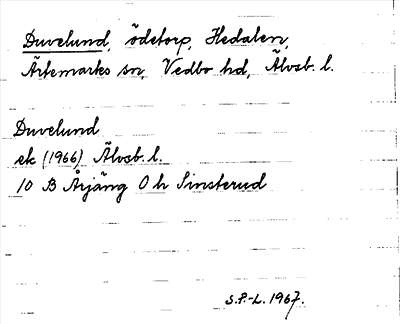 Duvelund, ödetorp, Hedalen,
Ärtemarks sn, Vedbo hd, Älvsb. l.
Duvelund
ek (1966) Älvsb. l.
10 B Årjäng O h Sinsterud
S.P.-L. 1967.